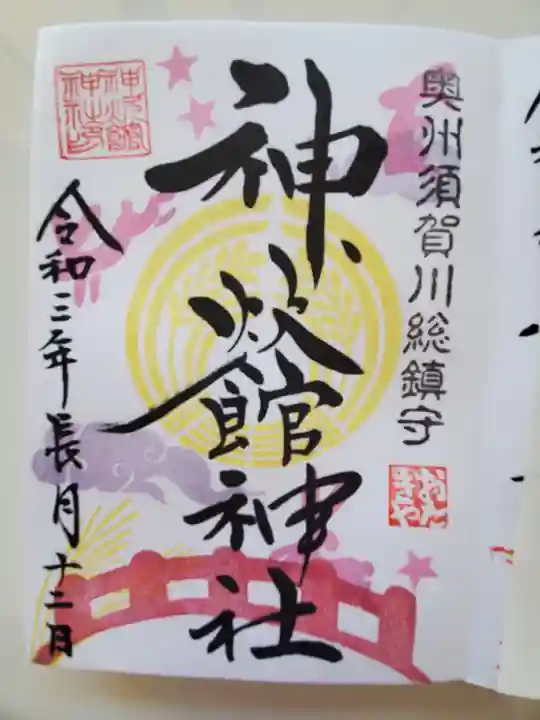 奥州須賀川総鎮守
神炊館神社
令和三年長月十二日
神炊館
神社印
おた
きや